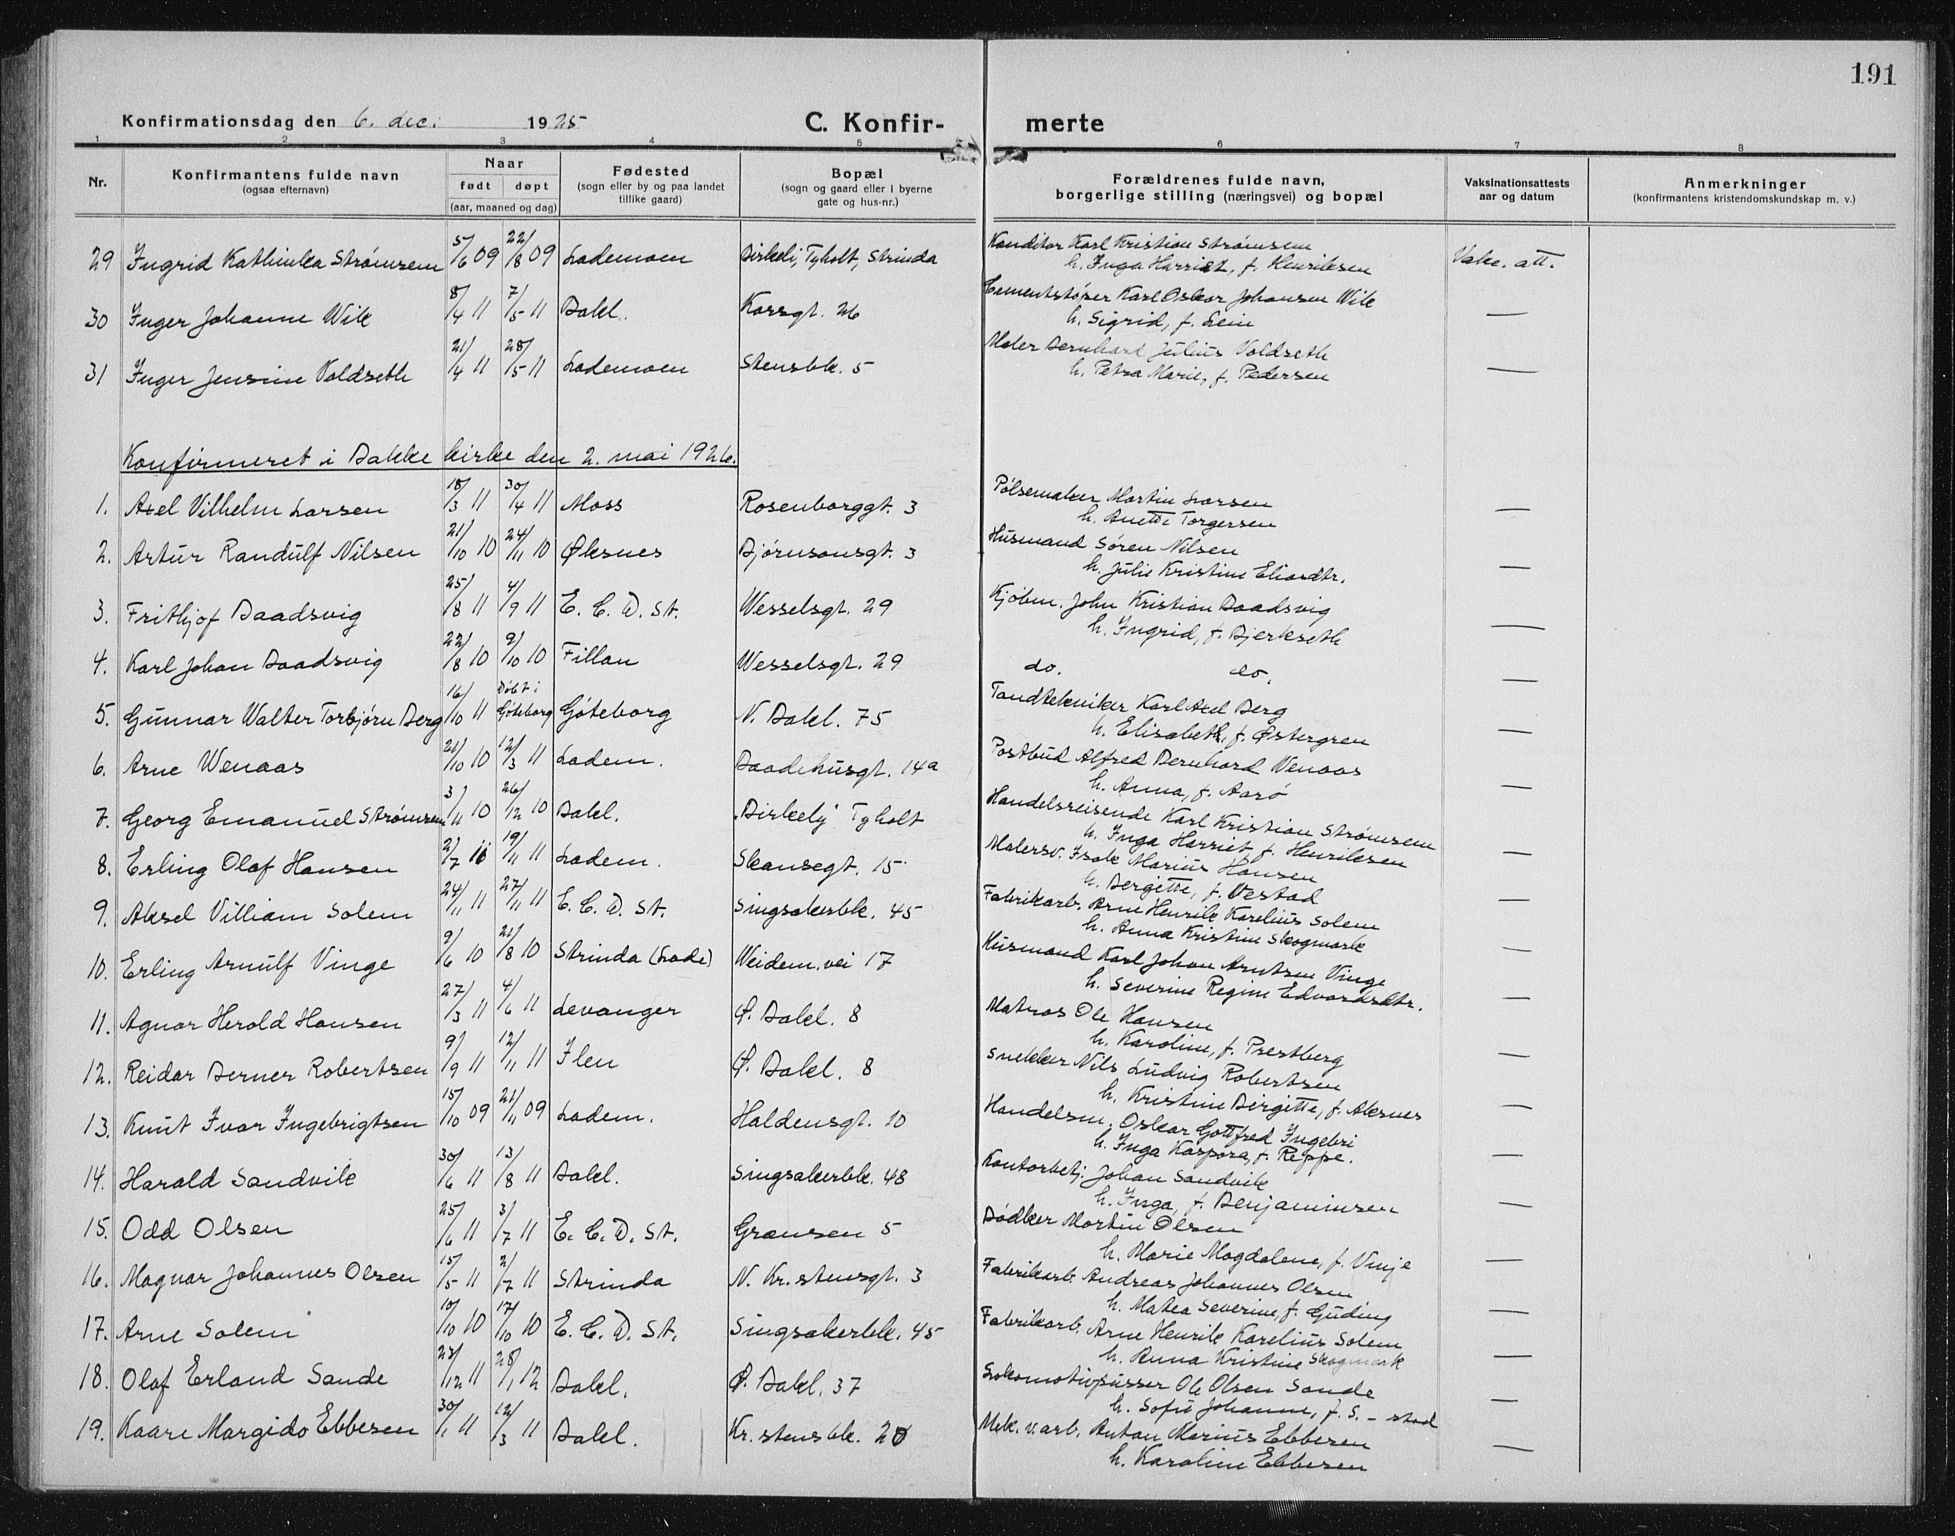 191
Konfirmationsdag den 6. dec. 1925
C. Konfir-
merte
1 2 3 4 5 6 7 8
Nr.
Konfirmantens fulde navn
(ogsaa efternavn)
Naar
født døpt
(aar, maaned og dag)
Fødested
(sogn eller by og paa landet
tillike gaard)
Bopæl
(sogn og gaard eller i byerne
gate og hus-nr.)
Forældrenes fulde navn,
borgerlige stilling (næringsvei) og bopæl
Vaksinationsattests
aar og datum
Anmerkninger
(konfirmantens kristendomskundskap m. v.)
29 Ingrid Kathinka Strømsem 5/6 09 22/8 09 Lademoen Birkeli, Tyholt, Strinda Konditor Karl Kristian Strømsem Vakc. att.
h. Inga Harriet, f. Henriksen
30 Inger Johanne Wik 8/4 11 7/5 11 Bakl. Korsgt. 26 Cementstøper Karl Oskar Johansen Wik —
h. Sigrid, f. Lein
31 Inger Jensine Voldseth 21/4 11 28/5 11 Lademoen Stensbk. 5 Maler Bernhard Julius Voldseth —
h. Petra Marie, f. Pedersen
Konfirmeret i Bakke kirke den 2. mai 1926.
1. Axel Vilhelm Larsen 18/3 11 30/4 11 Moss Rosenborggt. 3 Pølsemaker Martin Larsen —
h. Anette Torgersen
2. Artur Randulf Nilsen 21/10 10 24/11 10 Øksnes Bjørnsonsgt. 3 Husmand Søren Nilsen —
h. Julie Kristine Eliasdtr.
3. Frithjof Baadsvig 25/8 11 4/9 11 E. C. D. St. Wesselsgt. 29 Kjøbm. John Kristian Baadsvig —
h. Ingrid, f. Bjerkseth
4. Karl Johan Baadsvig 22/8 10 9/10 10 Fillan Wesselsgt. 29 do. do. —
5. Gunnar Walter Torbjørn Berg 16/10 11 Døbt i Göteborg Göteborg N. Bakl. 75 Tandtekniker Karl Axel Berg —
h. Elisabeth, f. Østergren
6. Arne Wenaas 21/10 10 12/3 11 Ladem. Baadehusgt. 14a Postbud Alfred Bernhard Venaas —
h. Anna, f. Aarø
7. Georg Emanuel Strømsem 3/11 10 26/12 10 Bakl. Birkely Tyholt Handelsreisende Karl Kristian Strømsem —
h. Inga Harriet f. Henriksen
8. Erling Olaf Hansen 2/7 11 19/11 11 Ladem. Skansegt. 15 Malersv. Isak Marius Hansen —
h. Bergitte, f. Vestad
9. Aksel Villiam Solem 24/11 11 27/11 11 E. C. D. St. Singsakerbk. 45 Fabrikarb. Arne Henrik Karelius Solem —
h. Anna Kristine Skogmark
10. Erling Arnulf Vinge 9/6 10 21/8 10 Strinda (Lade) Weidem. vei 17 Husmand Karl Johan Arntsen Vinge —
h. Severine Regine Edvardsdtr.
11. Agnar Herold Hansen 27/3 11 4/6 11 Levanger Ø. Bakl. 8 Matros Ole Hansen —
h. Karoline, f. Prestberg
12. Reidar Berner Robertsen 9/9 11 12/11 11 Ilen Ø. Bakl. 8 Snekker Nils Ludvig Robertsen —
h. Kristine Birgitte, f. Aksnes
13. Knut Ivar Ingebrigtsen 15/10 09 21/11 09 Ladem. Haldensgt. 10 Handelsm. Oskar Gottfred Ingebri —
h. Inga Kaspara, f. Reppe.
14. Harald Sandvik 30/6 11 13/8 11 Bakl. Singsakerbk. 48 Kontorbetj. Johan Sandvik —
h. Inga, f. Benjaminsen
15. Odd Olsen 25/6 11 3/7 11 E. C. D. St. Grænsen 5 Bødker Martin Olsen —
h. Marie Magdalene, f. Vinje
16. Magnar Johannes Olsen 15/5 11 2/7 11 Strinda N. Kr.stensgt. 3 Fabrikarb. Andreas Johannes Olsen —
h. Matea Severine, f. Guding
17. Arne Solem 10/10 10 17/10 10 E. C. D. St. Singsakerbk. 45 Fabrikarb. Arne Henrik Karelius Solem —
h. Anna Kristine Skogmark
18. Olaf Erland Sande 23/12 11 28/1 12 Bakl. Ø. Bakl. 37 Lokomotivpusser Ole Olsen Sande —
h. Sofie Johanne, f. S. - stad
19. Kaare Margido Ebbesen 30/1 11 12/3 11 Bakl. Kr.stensbk. 20 Mek. v. arb. Anton Marius Ebbesen —
h. Karoline Ebbesen